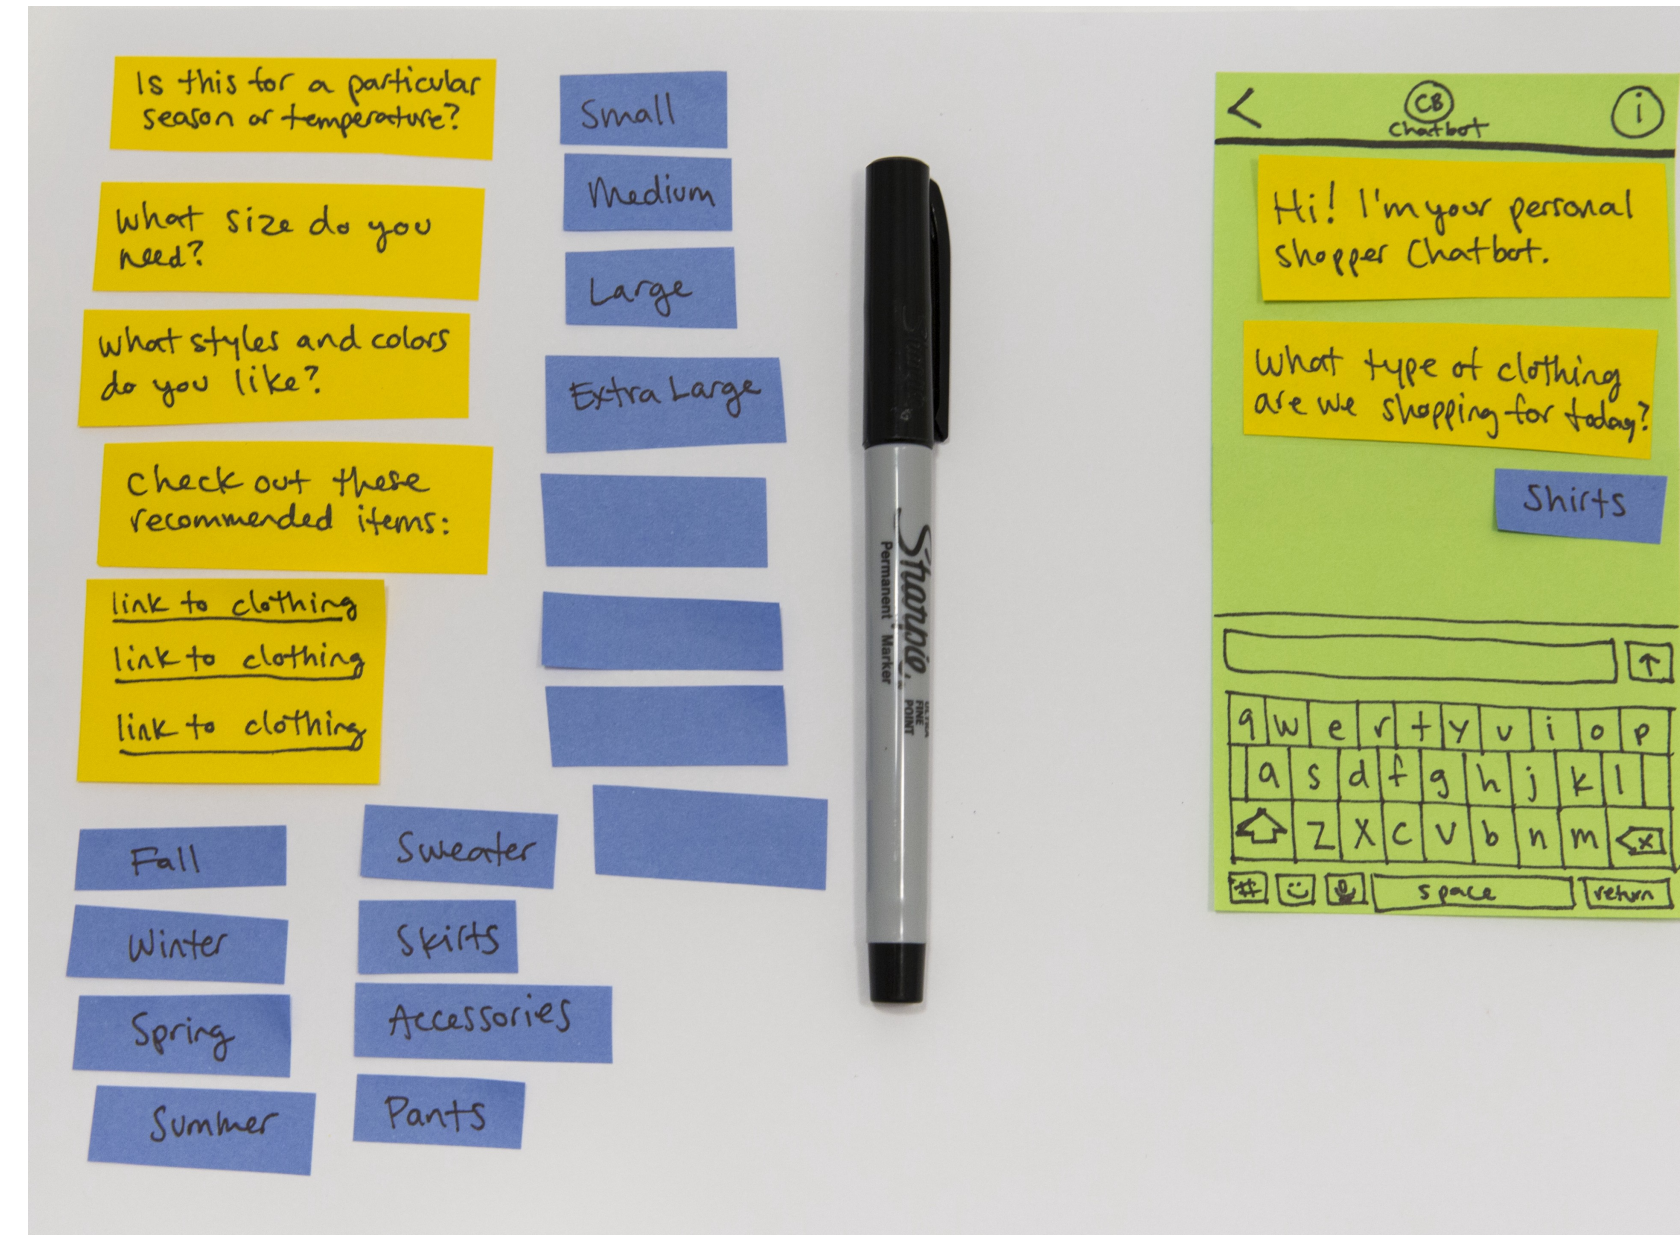 Is this for a particular
season or temperature?
What size do you
need?
What styles and colors
do you like?
Check out these
recommended items:
link to clothing
link to clothing
link to clothing
Fall
Winter
Spring
Summer
Sweater
Skirts
Accessories
Pants
Small
Medium
Large
Extra Large
Sharpie
Permanent Marker
ULTRA
FINE
POINT
<
CB
Chatbot
i
Hi! I'm your personal
shopper Chatbot.
What type of clothing
are we shopping for today?
Shirts
↑
q w e r t y u i o p
a s d f g h j k l
z x c v b n m
# space return